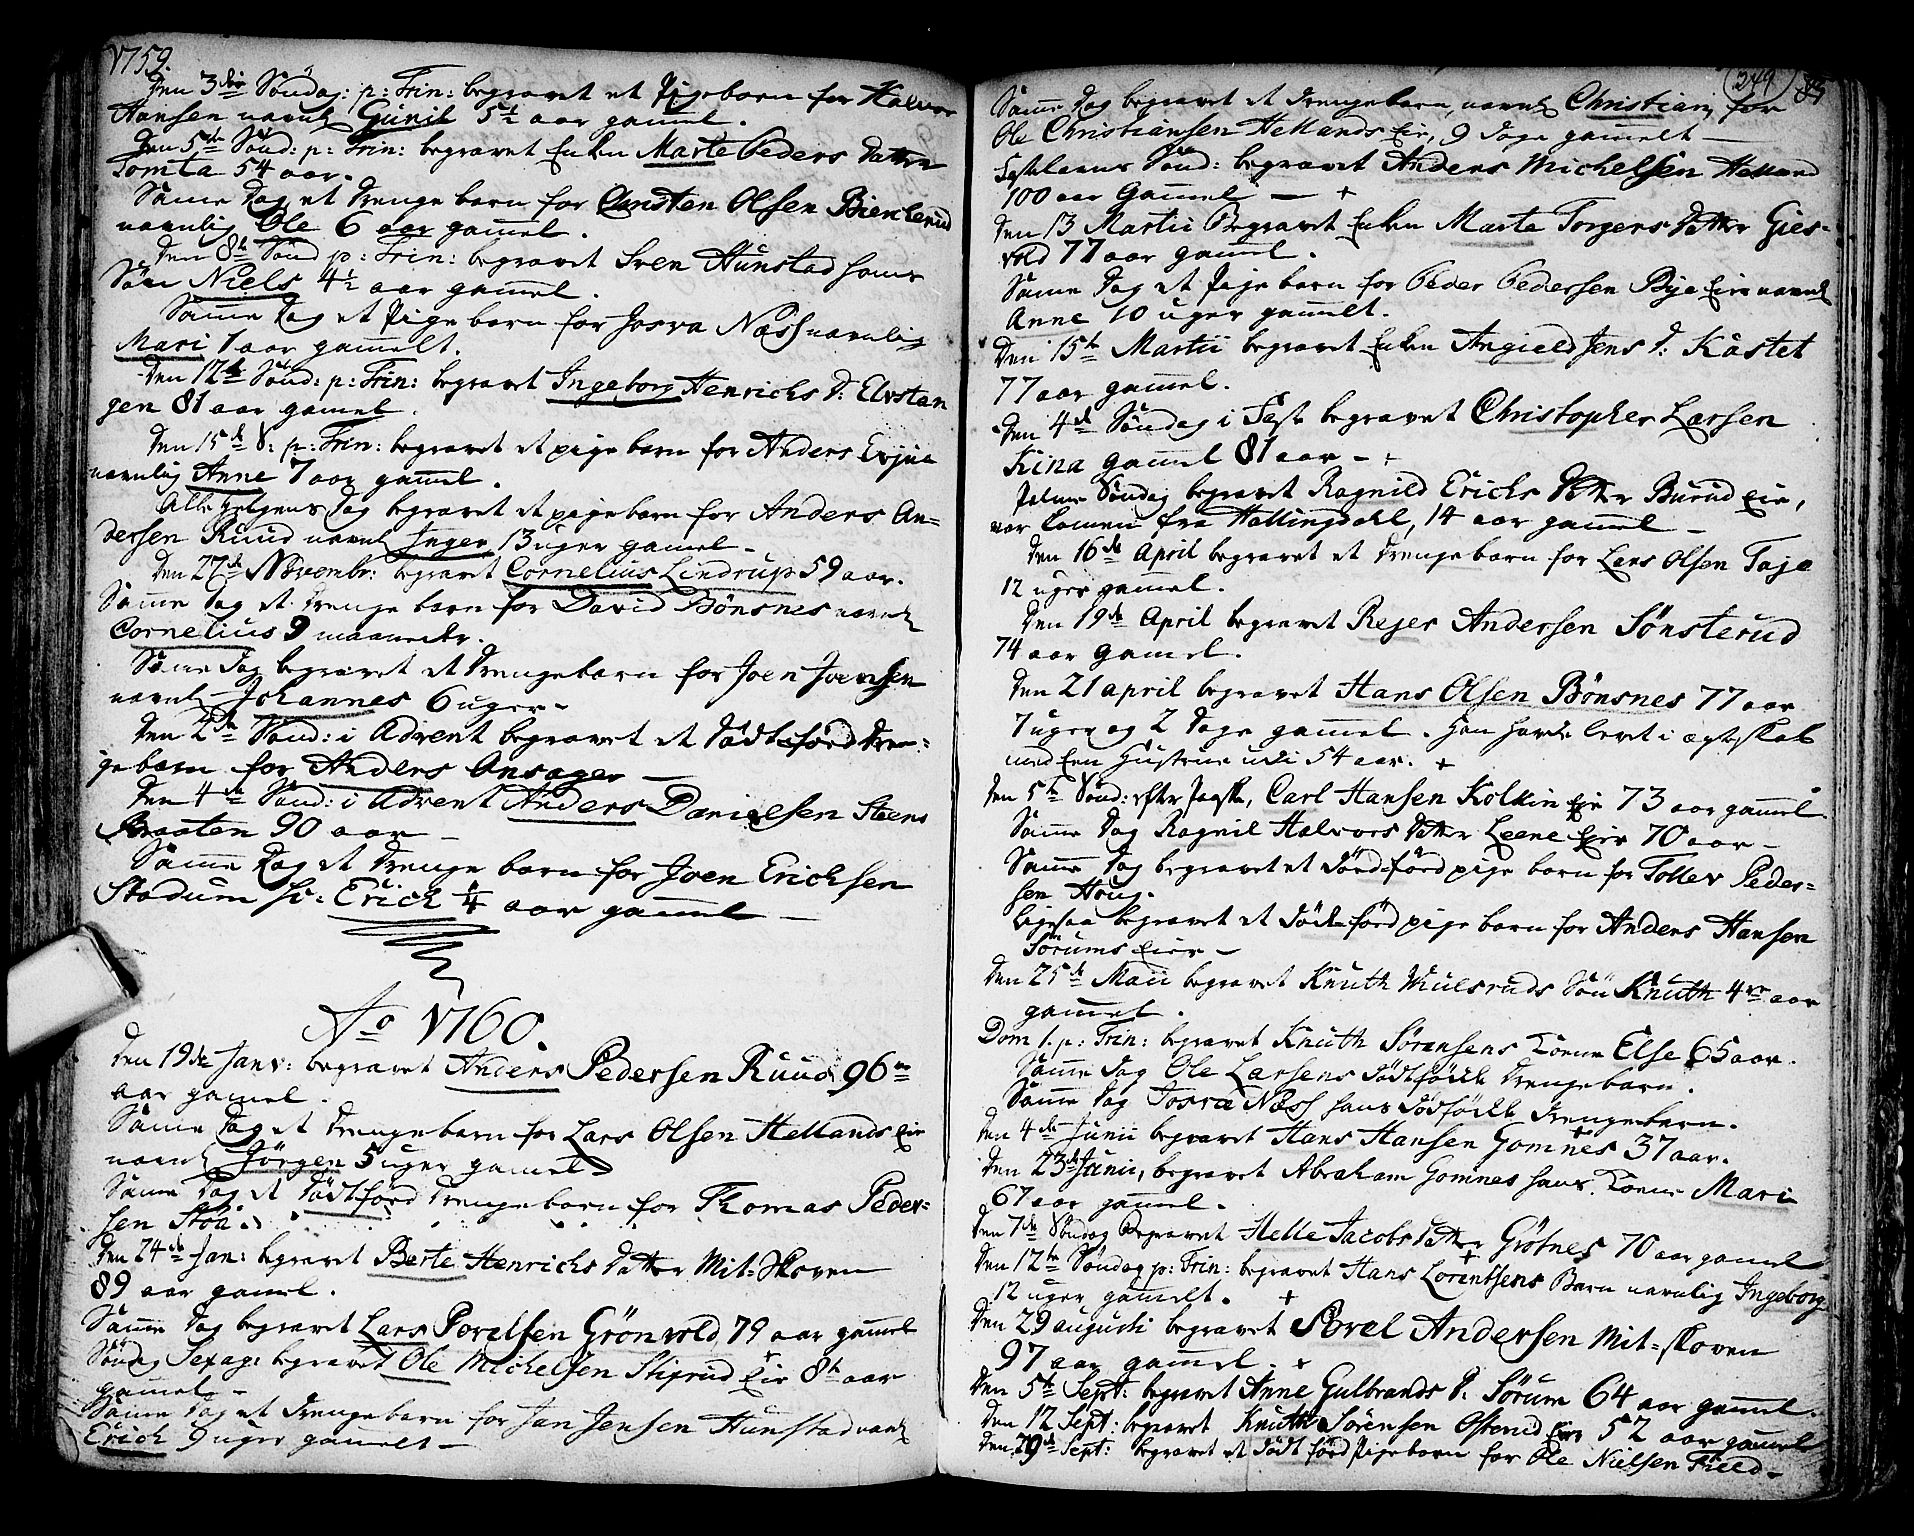 1759.
Den 3die Söndag: p: Trin: begravet et Pigebarn for Halvor
Hansen navnl Gunil 5½ aar gam̅el.
Den 5te Sönd: p: Trin: begravet Enken Marte Peders Datter
Tomta 54 aar.
Sam̅e Dag et Drenge barn for Carsten Olsen Bienkerud
navnlig Ole 6 aar gam̅el.
Den 8de Sönd p: Trin: begravet Sven Hunstad hans
Sön Niels 4½ aar gam̅el.
Sam̅e Dag et Pige barn for Josva Næss navnlig
Mari 1 aar gam̅elt.
Den 12te Sönd: p: Trin: begravet Ingeborg Henrichs D: Elvstan
gen 81 aar gamel.
Den 15de S: p: Trin: begravet et pige barn for Anders Evjue
navnlig Anne 7 aar gam̅el.
Alle Helgens Dag begravet et pigebarn for Anders An=
dersen Ruud navnl Inger 13 uger gamel.
Den 27de Novembr: begravet Cornelius Lindrup 59 aar.
Sam̅e Dag et Drenge barn for David Bönsnes navnl
Cornelius 9 maaneder.
Sam̅e Dag begravet et Drengebarn for Joen Joensen
navnl Johannes 6 uger.
Den 2den Sönd: i Advent begravet et Dödt-föd Dren=
gebarn for Anders Ansager
Den 4de Sönd: i Advent Anders Danielsen Steens
Braaten 90 aar
Sam̅e Dag et Drenge barn for Joen Erichsen
Stadum h: Erich ¼ aar gam̅el
Ao 1760.
Den 19de Janv: begravet Anders Pedersen Ruud 96
aar gamel.
Sam̅e Dag et Drengebarn for Lars Olsen Hellands Eie
navnl Jörgen 5 uger gamel
Sam̅e Dag et Dödtföd Drengebarn for Thomas Peder=
sen Stöa.
Den 24de Jan: begravet Berte Henrichs Datter Mit=Skoven
89 aar gamel.
Sam̅e Dag begravet Lars Povelsen Grönvold, 79 aar gam̅el
Söndag Sexag: begravet Ole Michelsen Stiprud Eie 8te aar
gam̅el
Sam̅e Dag et Drengebarn for Jan Jensen Hunstad navnl
Erich 9 uger gam̅elt
344 83
Sam̅e Dag begravet et Drengebarn, navnl Christian, for
Ole Christiansen Hellands Eie, 9 dage gam̅elt
Fastelavns Sönd: begravet Anders Michelsen Helland
100 aar Gam̅el +
Den 13 Martii Begravet Enken Marte Torgers Datter Gies=
vold 77 aar gam̅el.
Sam̅e Dag et Pige barn for Peder Pedersen Bye Eie navnl
Anne 10 uger gam̅elt.
Den 15te Martii begravet Enken Angield Jens D: Kastet
77 aar gam̅el.
Den 4de Söndag i Faste begravet Christopher Larsen
Kina gam̅el 81 aar - +
Palme Söndag begravet Ragnild Erichs Datter Burud Eie,
var komen fra Hallingdahl, 14 aar gam̅el
Den 16de April begravet et Drenge barn for Lars Olsen Faje
12 uger gam̅el.
Den 19de April begravet Rejer Andersen Sönsterud
74 aar gamel.
Den 21 april begravet Hans Olsen Bönsnes 77 aar
7 uger og 2 Dage gam̅el. han hafde levet i ægteskab
med Een Hustrue udi 54 aar. +
Den 5te Sönd: efter Paaske, Carl Hansen Kolkin Eie 73 aar gam̅el.
Sam̅e Dag Ragnil Halvors Datter Leene Eie 70 aar
Sam̅e Dag begravet et död-föd pige barn for Tollev Peder=
sen Houg.
ligesaa begravet et död-föd pige barn for Anders Hansen
Sörums Eie
Den 25de Maii begravet Knuth Muelsruds Sön Knuth 4re aar
gam̅el.
Dom 1. p: Trin: begravet Knuth Sörensens Kone Else 65 aar.
Sam̅e Dag Ole Larsens Dödtfödde Drengebarn.
Sam̅e Dag Josva Næss hans dödfödde Drengebarn.
Den 4de Junii begravet Hans Hansen Gomnes 37 aar.
Den 23de Junii, begravet Abraham Gomnes hans Kone Mari
67 aar gam̅el.
Den 7de Söndag Begravet Helle Jacobs Datter Grötnes 70 aar gamel
Den 12te Söndag p: Trin: begravet Hans Lorentsens Barn navnlig Ingeborg
12 uger gam̅elt. +
Den 29 augusti begravet Povel Andersen Mit=skoven
97 aar gam̅el. +
Den 5te Sept: begravet Anne Gulbrands D: Sörum 64 aar gam̅el.
Den 12 Sept: begravet Knuth Sörensen Osterud Eie 52 aar gam̅el
Den 29de Sept: begravet et dödt föd Pigebarn for Ole Nielsen Field